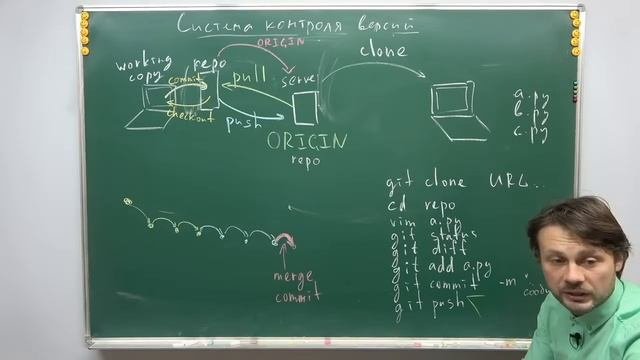 Система контроля версий
ORIGIN
clone
working
copy
repo
commit
pull
serve
checkout
push
ORIGIN
repo
a.py
b.py
c.py
merge
commit
git clone URL...
cd repo
vim a.py
git status
git diff
git add a.py
git commit -m "
git push